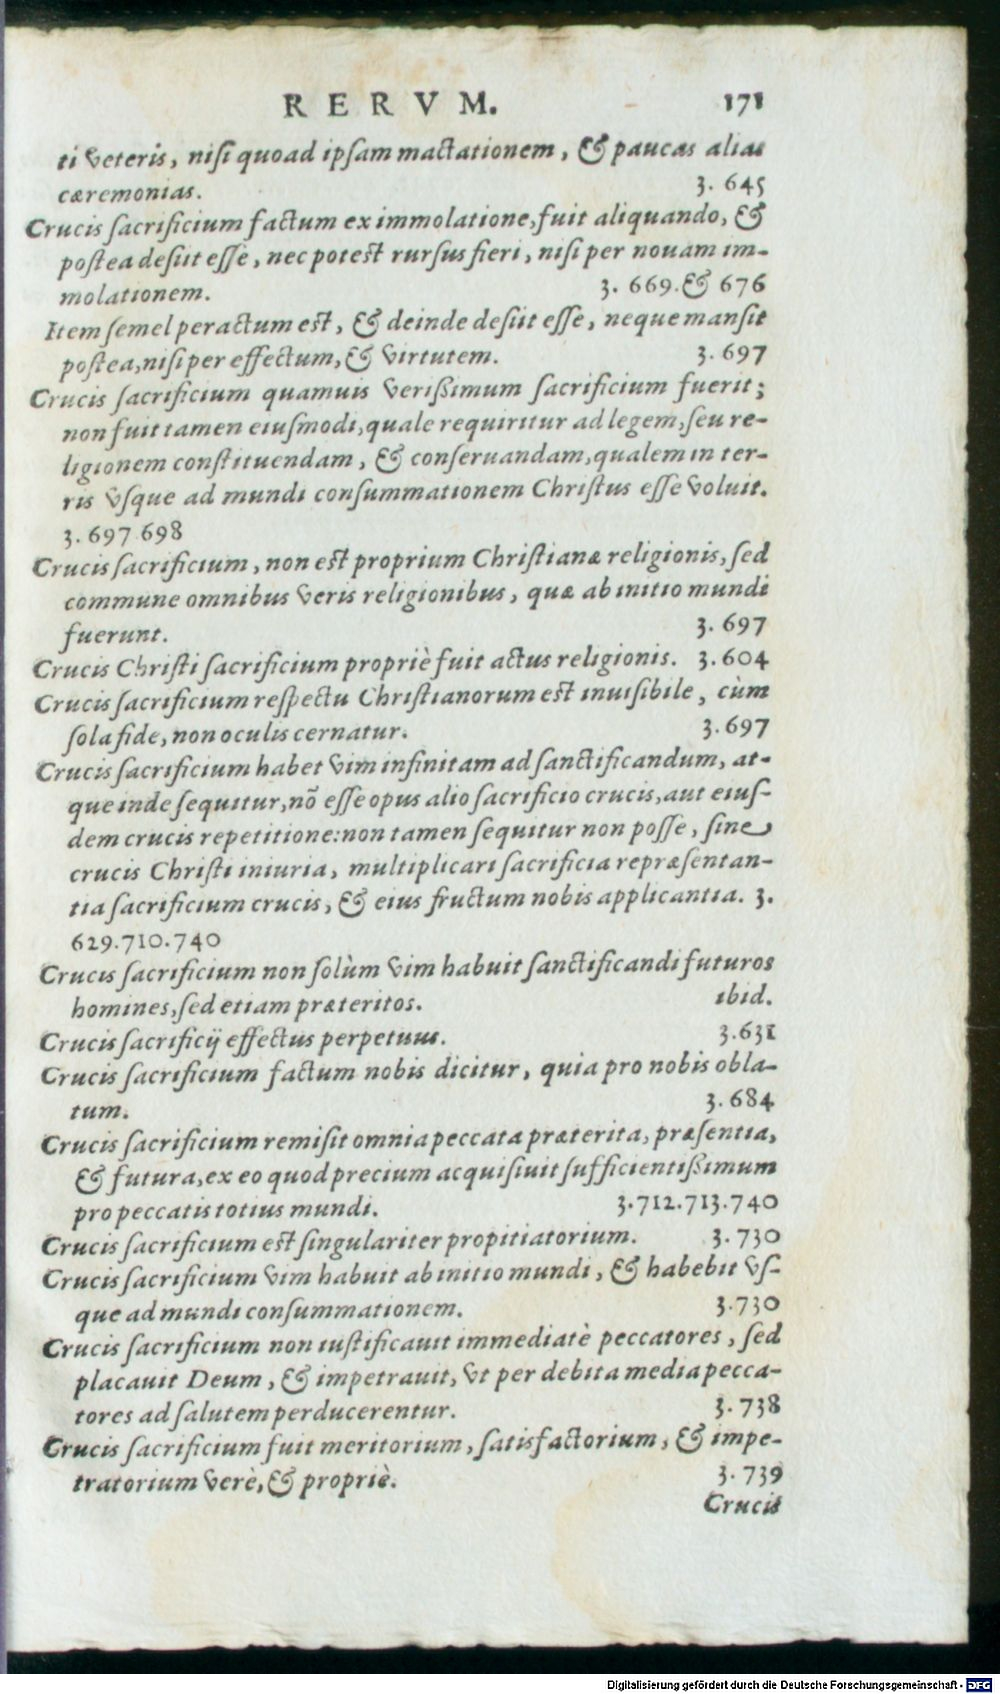 RERVM. 171
ti veteris, nisi quoad ipsam mactationem, & paucas alias
cæremonias. 3. 645
Crucis sacrificium factum ex immolatione, fuit aliquando, &
postea desiit esse, nec potest rursus fieri, nisi per nouam im-
molationem. 3. 669. & 676
Item semel peractum est, & deinde desiit esse, neque mansit
postea, nisi per effectum, & virtutem. 3. 697
Crucis sacrificium quamuis verißimum sacrificium fuerit;
non fuit tamen eiusmodi, quale requiritur ad legem, seu re-
ligionem constituendam, & conseruandam, qualem in ter-
ris vsque ad mundi consummationem Christus esse voluit.
3. 697 698
Crucis sacrificium, non est proprium Christianæ religionis, sed
commune omnibus veris religionibus, quæ ab initio mundi
fuerunt. 3. 697
Crucis Christi sacrificium propriè fuit actus religionis. 3. 604
Crucis sacrificium respectu Christianorum est inuisibile, cùm
sola fide, non oculis cernatur. 3. 697
Crucis sacrificium habet vim infinitam ad sanctificandum, at-
que inde sequitur, nõ esse opus alio sacrificio crucis, aut eius-
dem crucis repetitione: non tamen sequitur non posse, sine
crucis Christi iniuria, multiplicari sacrificia repræsentan-
tia sacrificium crucis, & eius fructum nobis applicantia. 3.
629. 710. 740
Crucis sacrificium non solùm vim habuit sanctificandi futuros
homines, sed etiam præteritos. ibid.
Crucis sacrificij effectus perpetuus. 3. 631
Crucis sacrificium factum nobis dicitur, quia pro nobis obla-
tum. 3. 684
Crucis sacrificium remisit omnia peccata præterita, præsentia,
& futura, ex eo quod precium acquisiuit sufficientißimum
pro peccatis totius mundi. 3. 712. 713. 740
Crucis sacrificium est singulariter propitiatorium. 3. 730
Crucis sacrificium vim habuit ab initio mundi, & habebit vs-
que ad mundi consummationem. 3. 730
Crucis sacrificium non iustificauit immediatè peccatores, sed
placauit Deum, & impetrauit, vt per debita media pecca-
tores ad salutem perducerentur. 3. 738
Crucis sacrificium fuit meritorium, satisfactorium, & impe-
tratorium verè, & propriè. 3. 739
Crucis
Digitalisierung gefördert durch die Deutsche Forschungsgemeinschaft - DFG